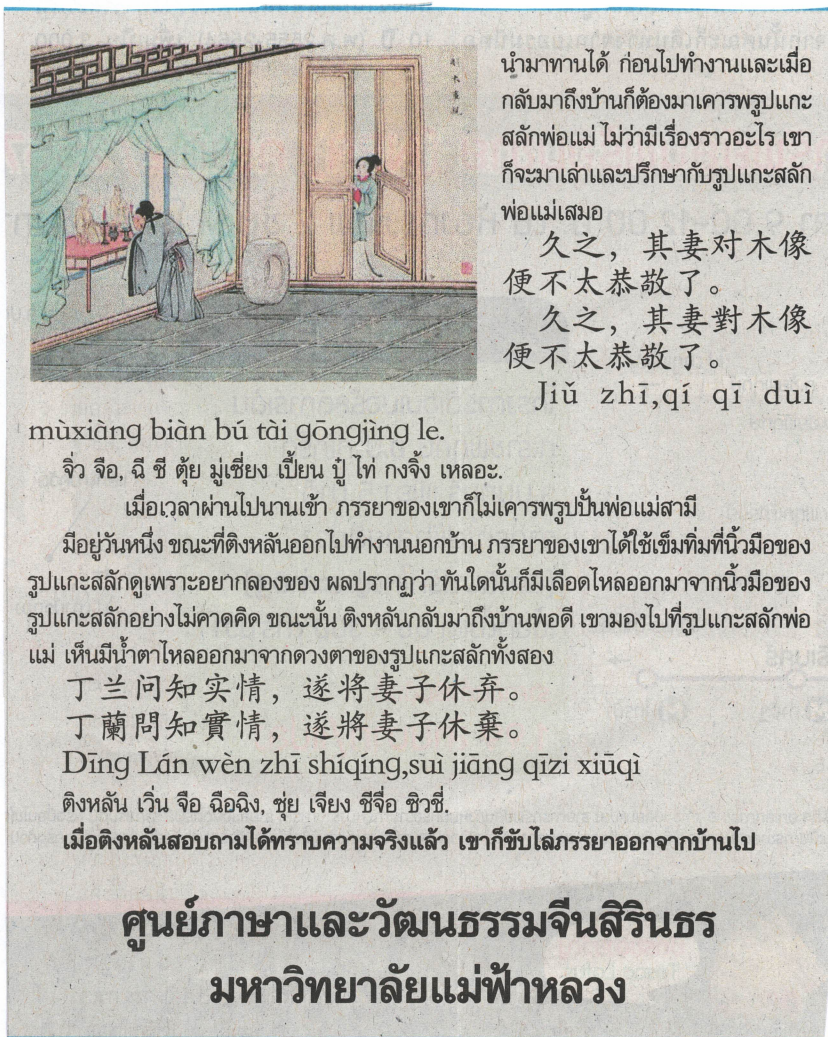 นำมาทานได้ ก่อนไปทำงานและเมื่อ
กลับมาถึงบ้านก็ต้องมาเคารพรูปแกะ
สลักพ่อแม่ ไม่ว่ามีเรื่องราวอะไร เขา
ก็จะมาเล่าและปรึกษากับรูปแกะสลัก
พ่อแม่เสมอ
久之，其妻对木像
便不太恭敬了。
久之，其妻對木像
便不太恭敬了。
Jiǔ zhī,qí qī duì
mùxiàng biàn bú tài gōngjìng le.
จิ่ว จือ, ฉี ชี ตุ้ย มู่เซี่ยง เปี้ยน ปู๋ ไท่ กงจิ้ง เหลอะ.
เมื่อเวลาผ่านไปนานเข้า ภรรยาของเขาก็ไม่เคารพรูปปั้นพ่อแม่สามี
มีอยู่วันหนึ่ง ขณะที่ติงหลันออกไปทำงานนอกบ้าน ภรรยาของเขาได้ใช้เข็มทิ่มที่นิ้วมือของ
รูปแกะสลักดูเพราะอยากลองของ ผลปรากฏว่า ทันใดนั้นก็มีเลือดไหลออกมาจากนิ้วมือของ
รูปแกะสลักอย่างไม่คาดคิด ขณะนั้น ติงหลันกลับมาถึงบ้านพอดี เขามองไปที่รูปแกะสลักพ่อ
แม่ เห็นมีน้ำตาไหลออกมาจากดวงตาของรูปแกะสลักทั้งสอง
丁兰问知实情，遂将妻子休弃。
丁蘭問知實情，遂將妻子休棄。
Dīng Lán wèn zhī shíqíng,suì jiāng qīzi xiūqì
ติงหลัน เวิ่น จือ ฉือฉิง, ซุ่ย เจียง ชีจื่อ ชิวชี่.
เมื่อติงหลันสอบถามได้ทราบความจริงแล้ว เขาก็ขับไล่ภรรยาออกจากบ้านไป
ศูนย์ภาษาและวัฒนธรรมจีนสิรินธร
มหาวิทยาลัยแม่ฟ้าหลวง